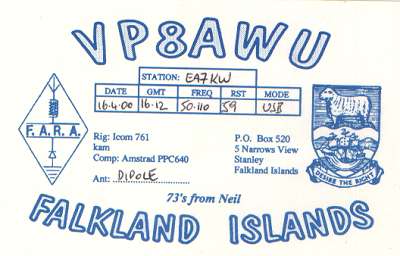 VP8AWU
STATION: EA7KW
DATE GMT FREQ RST MODE
16.4.00 16.12 50.110 59 USB
F.A.R.A.
Rig: Icom 761
kam
Comp: Amstrad PPC640
Ant: DIPOLE
P.O. Box 520
5 Narrows View
Stanley
Falkland Islands
DESIRE THE RIGHT
73's from Neil
FALKLAND ISLANDS